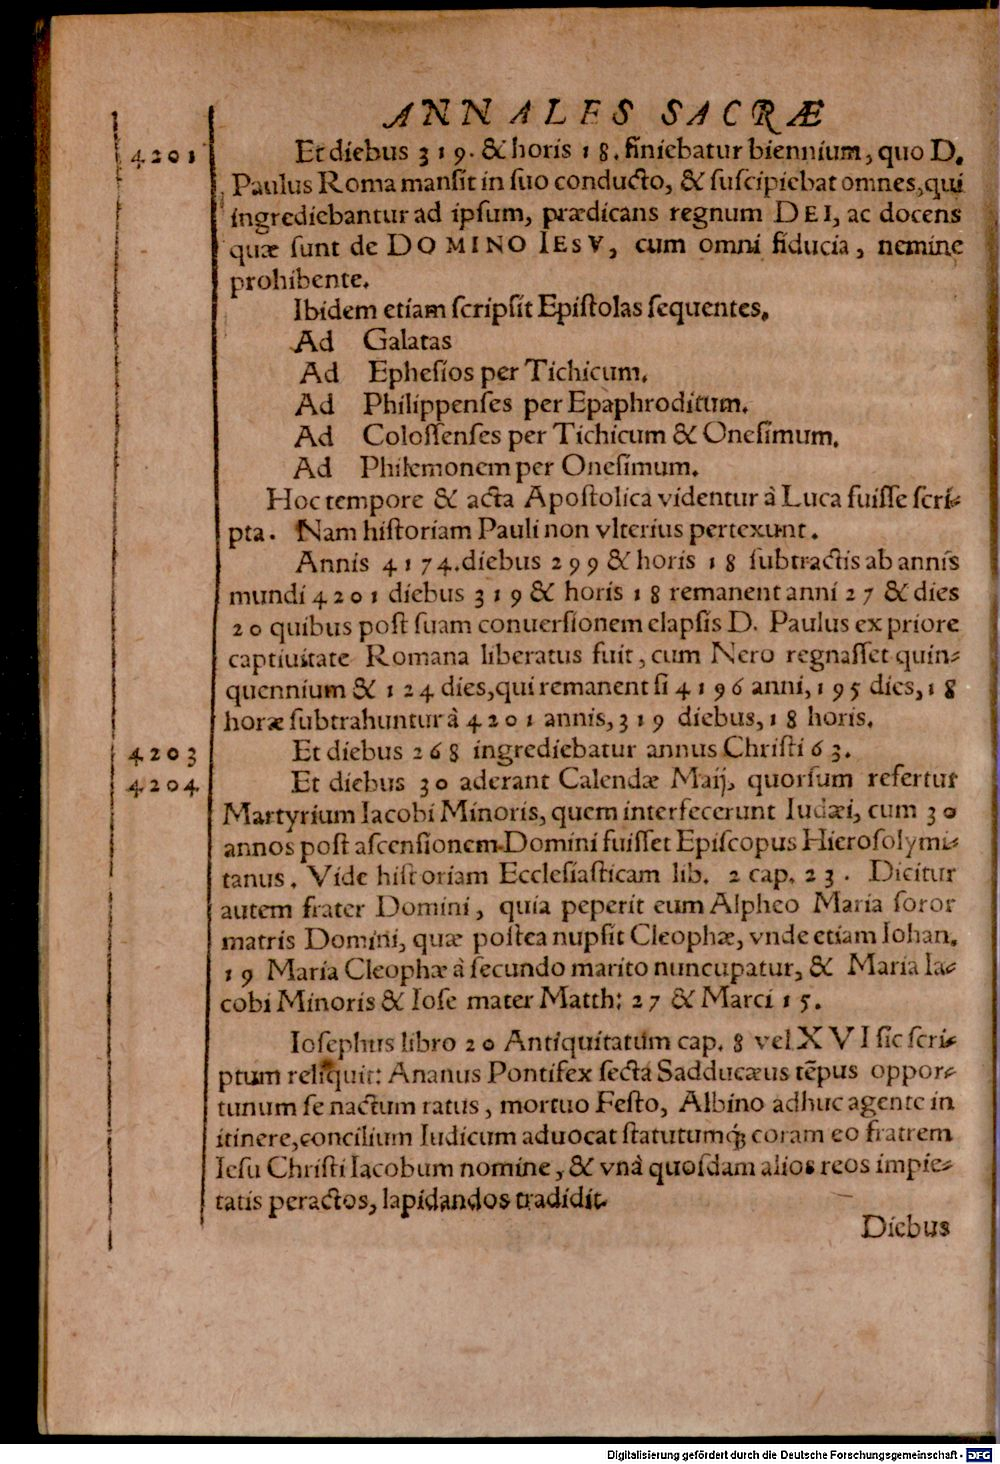 ANNALES SACRÆ
4201 Et diebus 319. & horis 18. finiebatur biennium, quo D.
Paulus Roma mansit in suo conducto, & suscipiebat omnes, qui
ingrediebantur ad ipsum, prædicans regnum DEI, ac docens
quæ sunt de DOMINO IESV, cum omni fiducia, nemine
prohibente.
Ibidem etiam scripsit Epistolas sequentes.
Ad Galatas
Ad Ephesios per Tichicum.
Ad Philippenses per Epaphroditum.
Ad Colossenses per Tichicum & Onesimum.
Ad Philemonem per Onesimum.
Hoc tempore & acta Apostolica videntur à Luca fuisse scri-
pta. Nam historiam Pauli non vlterius pertexunt.
Annis 4174. diebus 299 & horis 18 subtractis ab annis
mundi 4201 diebus 319 & horis 18 remanent anni 27 & dies
20 quibus post suam conuersionem elapsis D. Paulus ex priore
captiuitate Romana liberatus fuit, cum Nero regnasset quin-
quennium & 124 dies, qui remanent si 4196 anni, 195 dies, 18
horæ subtrahuntur à 4201 annis, 319 diebus, 18 horis.
4203 Et diebus 268 ingrediebatur annus Christi 63.
4204 Et diebus 30 aderant Calendæ Maij, quorsum refertur
Martyrium Iacobi Minoris, quem interfecerunt Iudæi, cum 30
annos post ascensionem Domini fuisset Episcopus Hierosolymi-
tanus. Vide historiam Ecclesiasticam lib. 2 cap. 23. Dicitur
autem frater Domini, quia peperit eum Alpheo Maria soror
matris Domini, quæ postea nupsit Cleophæ, vnde etiam Iohan.
19 Maria Cleophæ à secundo marito nuncupatur, & Maria Ia-
cobi Minoris & Iose mater Matth: 27 & Marci 15.
Iosephus libro 20 Antiquitatum cap. 8 vel XVI sic scri-
ptum reliquit: Ananus Pontifex secta Sadducæus tẽpus oppor-
tunum se nactum ratus, mortuo Festo, Albino adhuc agente in
itinere, concilium Iudicum aduocat statutumq; coram eo fratrem
Iesu Christi Iacobum nomine, & vnà quosdam alios reos impie-
tatis peractos, lapidandos tradidit.
Diebus
Digitalisierung gefördert durch die Deutsche Forschungsgemeinschaft - DFG